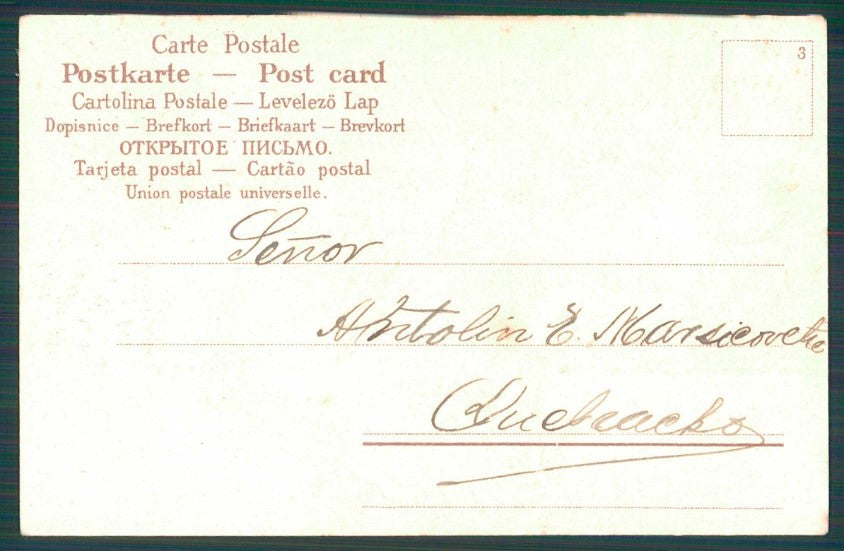 Carte Postale
3
Postkarte — Post card
Cartolina Postale — Levelezö Lap
Dopisnice — Brefkort — Briefkaart — Brevkort
ОТКРЫТОЕ ПИСЬМО.
Tarjeta postal — Cartão postal
Union postale universelle.
Señor
Antolin E. Marsicovetre
Quebracho